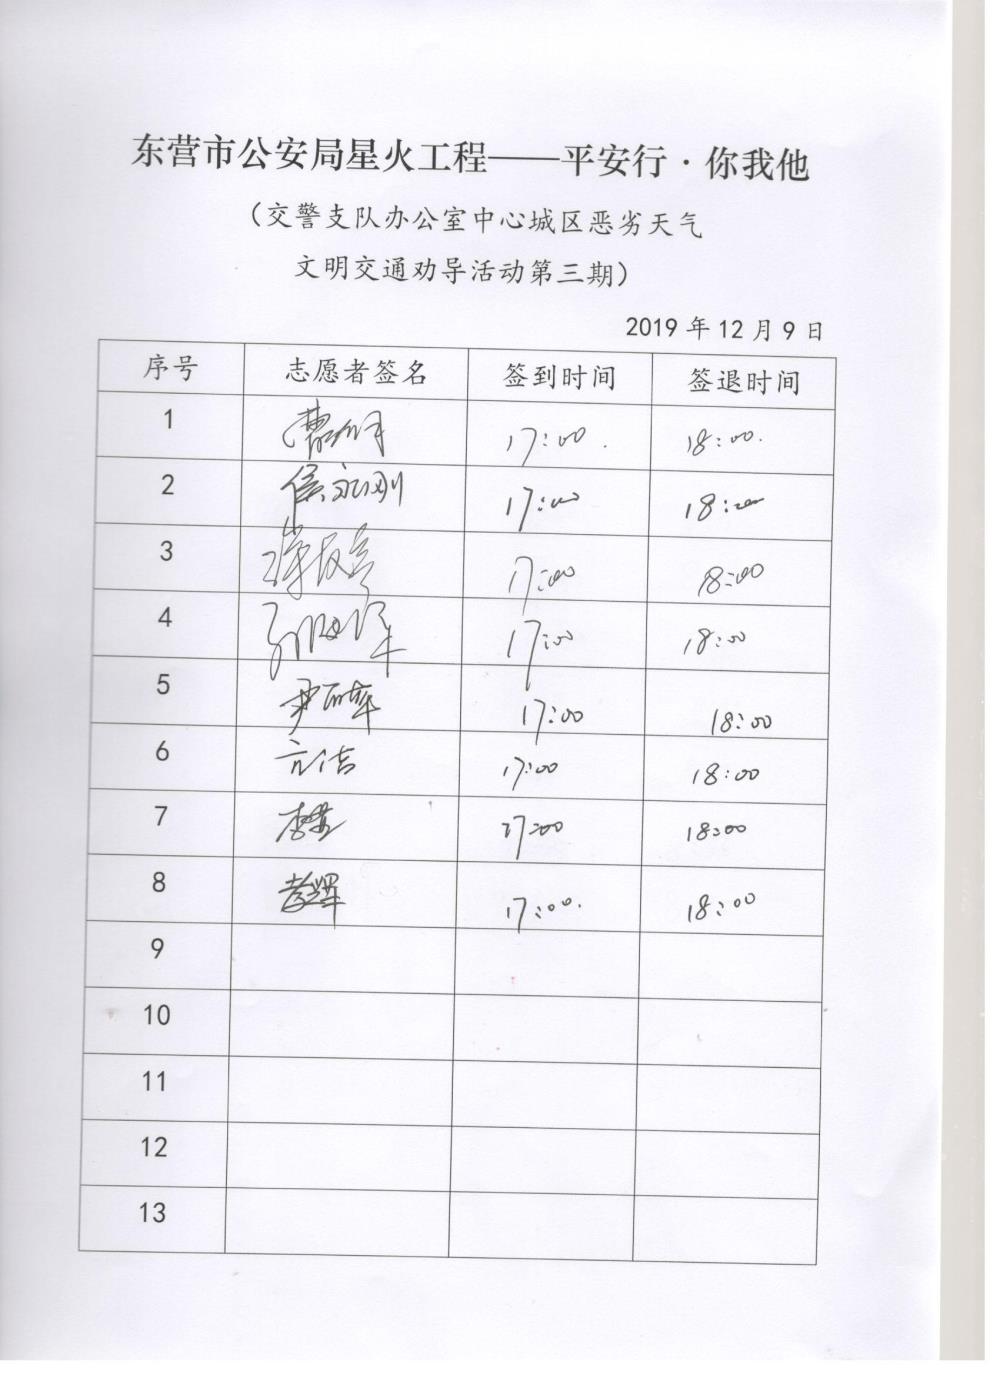 东营市公安局星火工程——平安行·你我他
（交警支队办公室中心城区恶劣天气
文明交通劝导活动第三期）
2019 年 12 月 9 日
序号 志愿者签名 签到时间 签退时间
1 17:00. 18:00.
2 侯永刚 17:00 18:00
3 17:00 18:00
4 17:00 18:00
5 尹丽萍 17:00 18:00
6 亓洁 17:00 18:00
7 17:00 18:00
8 17:00. 18:00
9
10
11
12
13